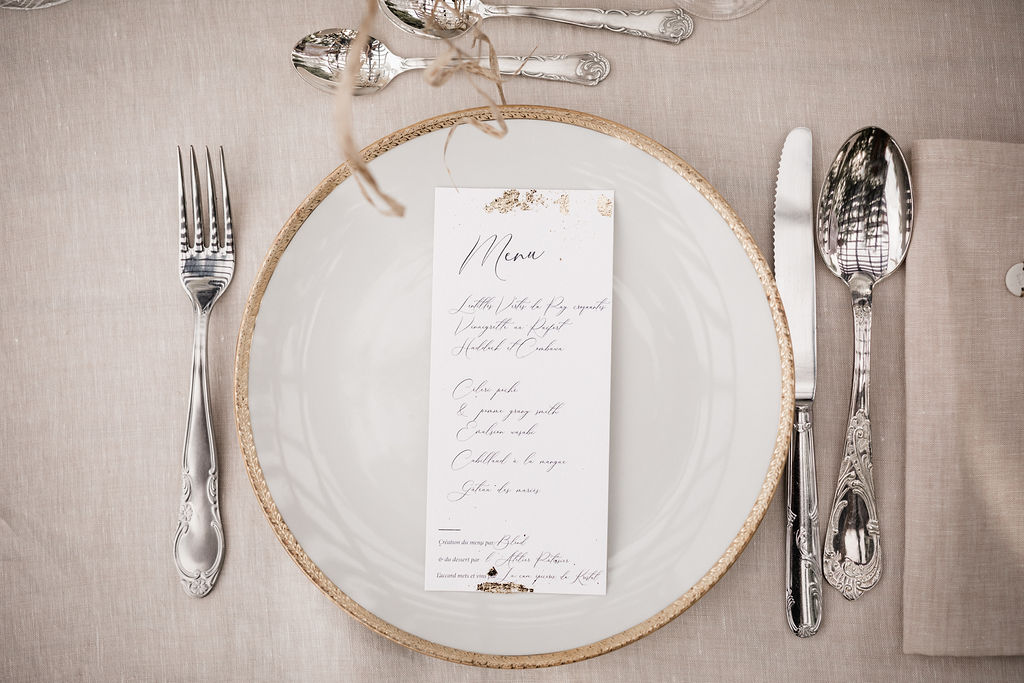 Menu
Lentilles Vertes du Puy croquantes
Vinaigrette au Raifort
Haddock et Combava
Céleri poché
& pomme granny smith
Emulsion wasabi
Cabillaud à la mangue
Gâteau des mariés
Création du menu par Blend
& du dessert par l'Atelier Patissier
l'accord mets et vins La cave épicerie du